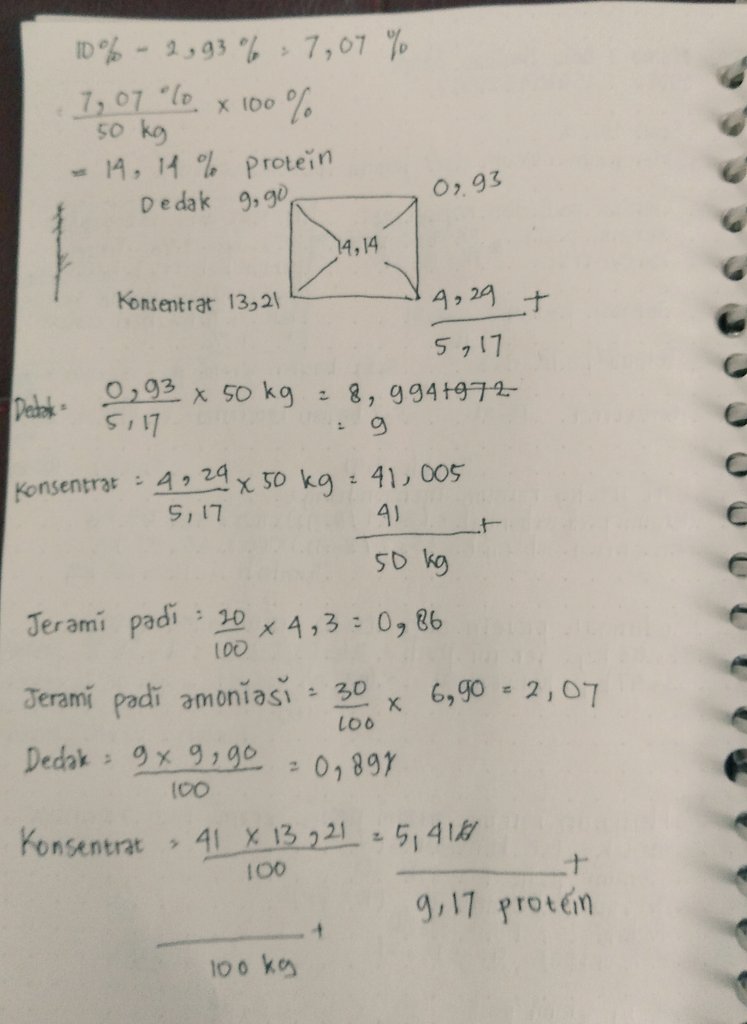 10% - 2,93 % = 7,07 %
7,07 % / 50 kg x 100 %
= 14,14 % protein
Dedak 9,90 0,93
14,14
Konsentrat 13,21 4,24 +
5,17
Dedak = 0,93 / 5,17 x 50 kg = 8,9941972
= 9
Konsentrat = 4,24 / 5,17 x 50 kg = 41,005
41 +
50 kg
Jerami padi = 20 / 100 x 4,3 = 0,86
Jerami padi amoniasi = 30 / 100 x 6,90 = 2,07
Dedak = 9 x 9,90 / 100 = 0,891
Konsentrat = 41 x 13,21 / 100 = 5,41
+
9,17 protein
+
100 kg